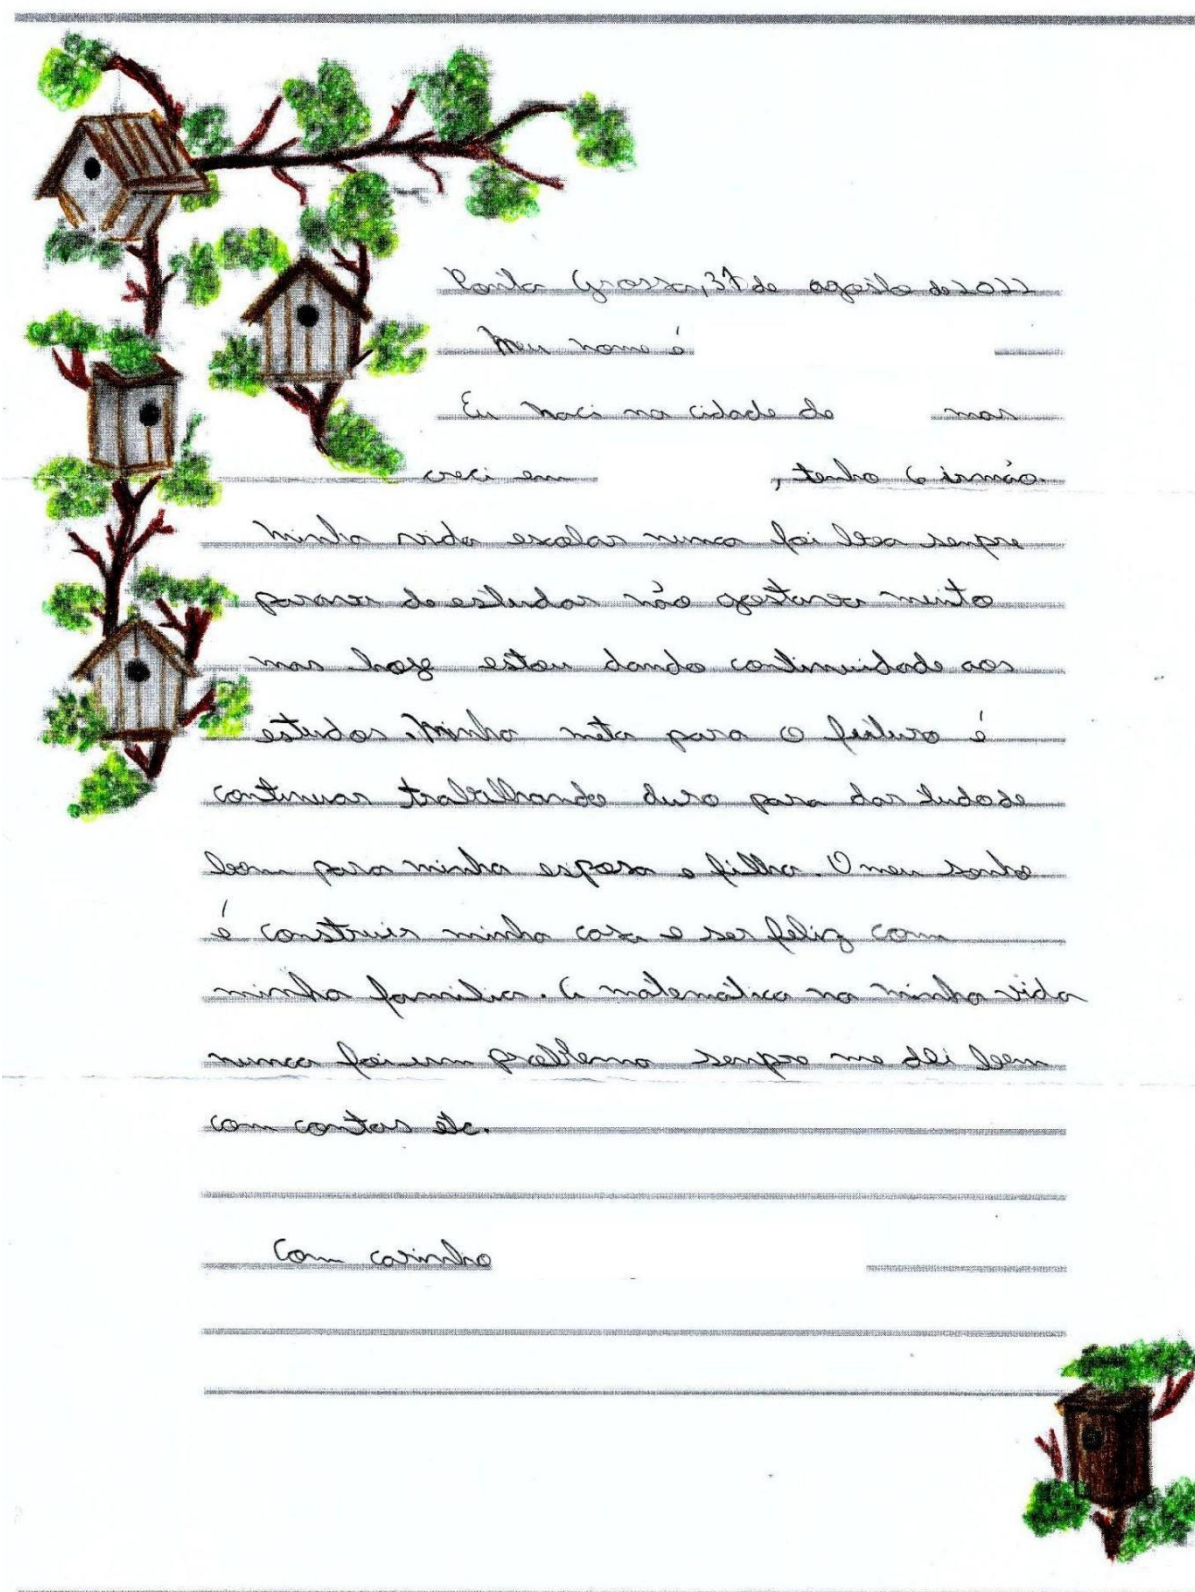 Ponta Grossa, 31 de agosto de 2022
Meu nome é
Eu naci na cidade de mas
creci em , tenho 6 irmão.
Minha vida escolar nunca foi boa senpre
parava de estudar não gostava muito
mas hoge estou dando continuidade aos
estudos. Minha meta para o futuro é
continuar trabalhando duro para dar tudode
bom para minha esposa e filha. O meu sonho
é construir minha casa e ser feliz com
minha familia. A matemática na minha vida
nunca foi um problema senpre me dei bem
com contas etc.
Com carinho